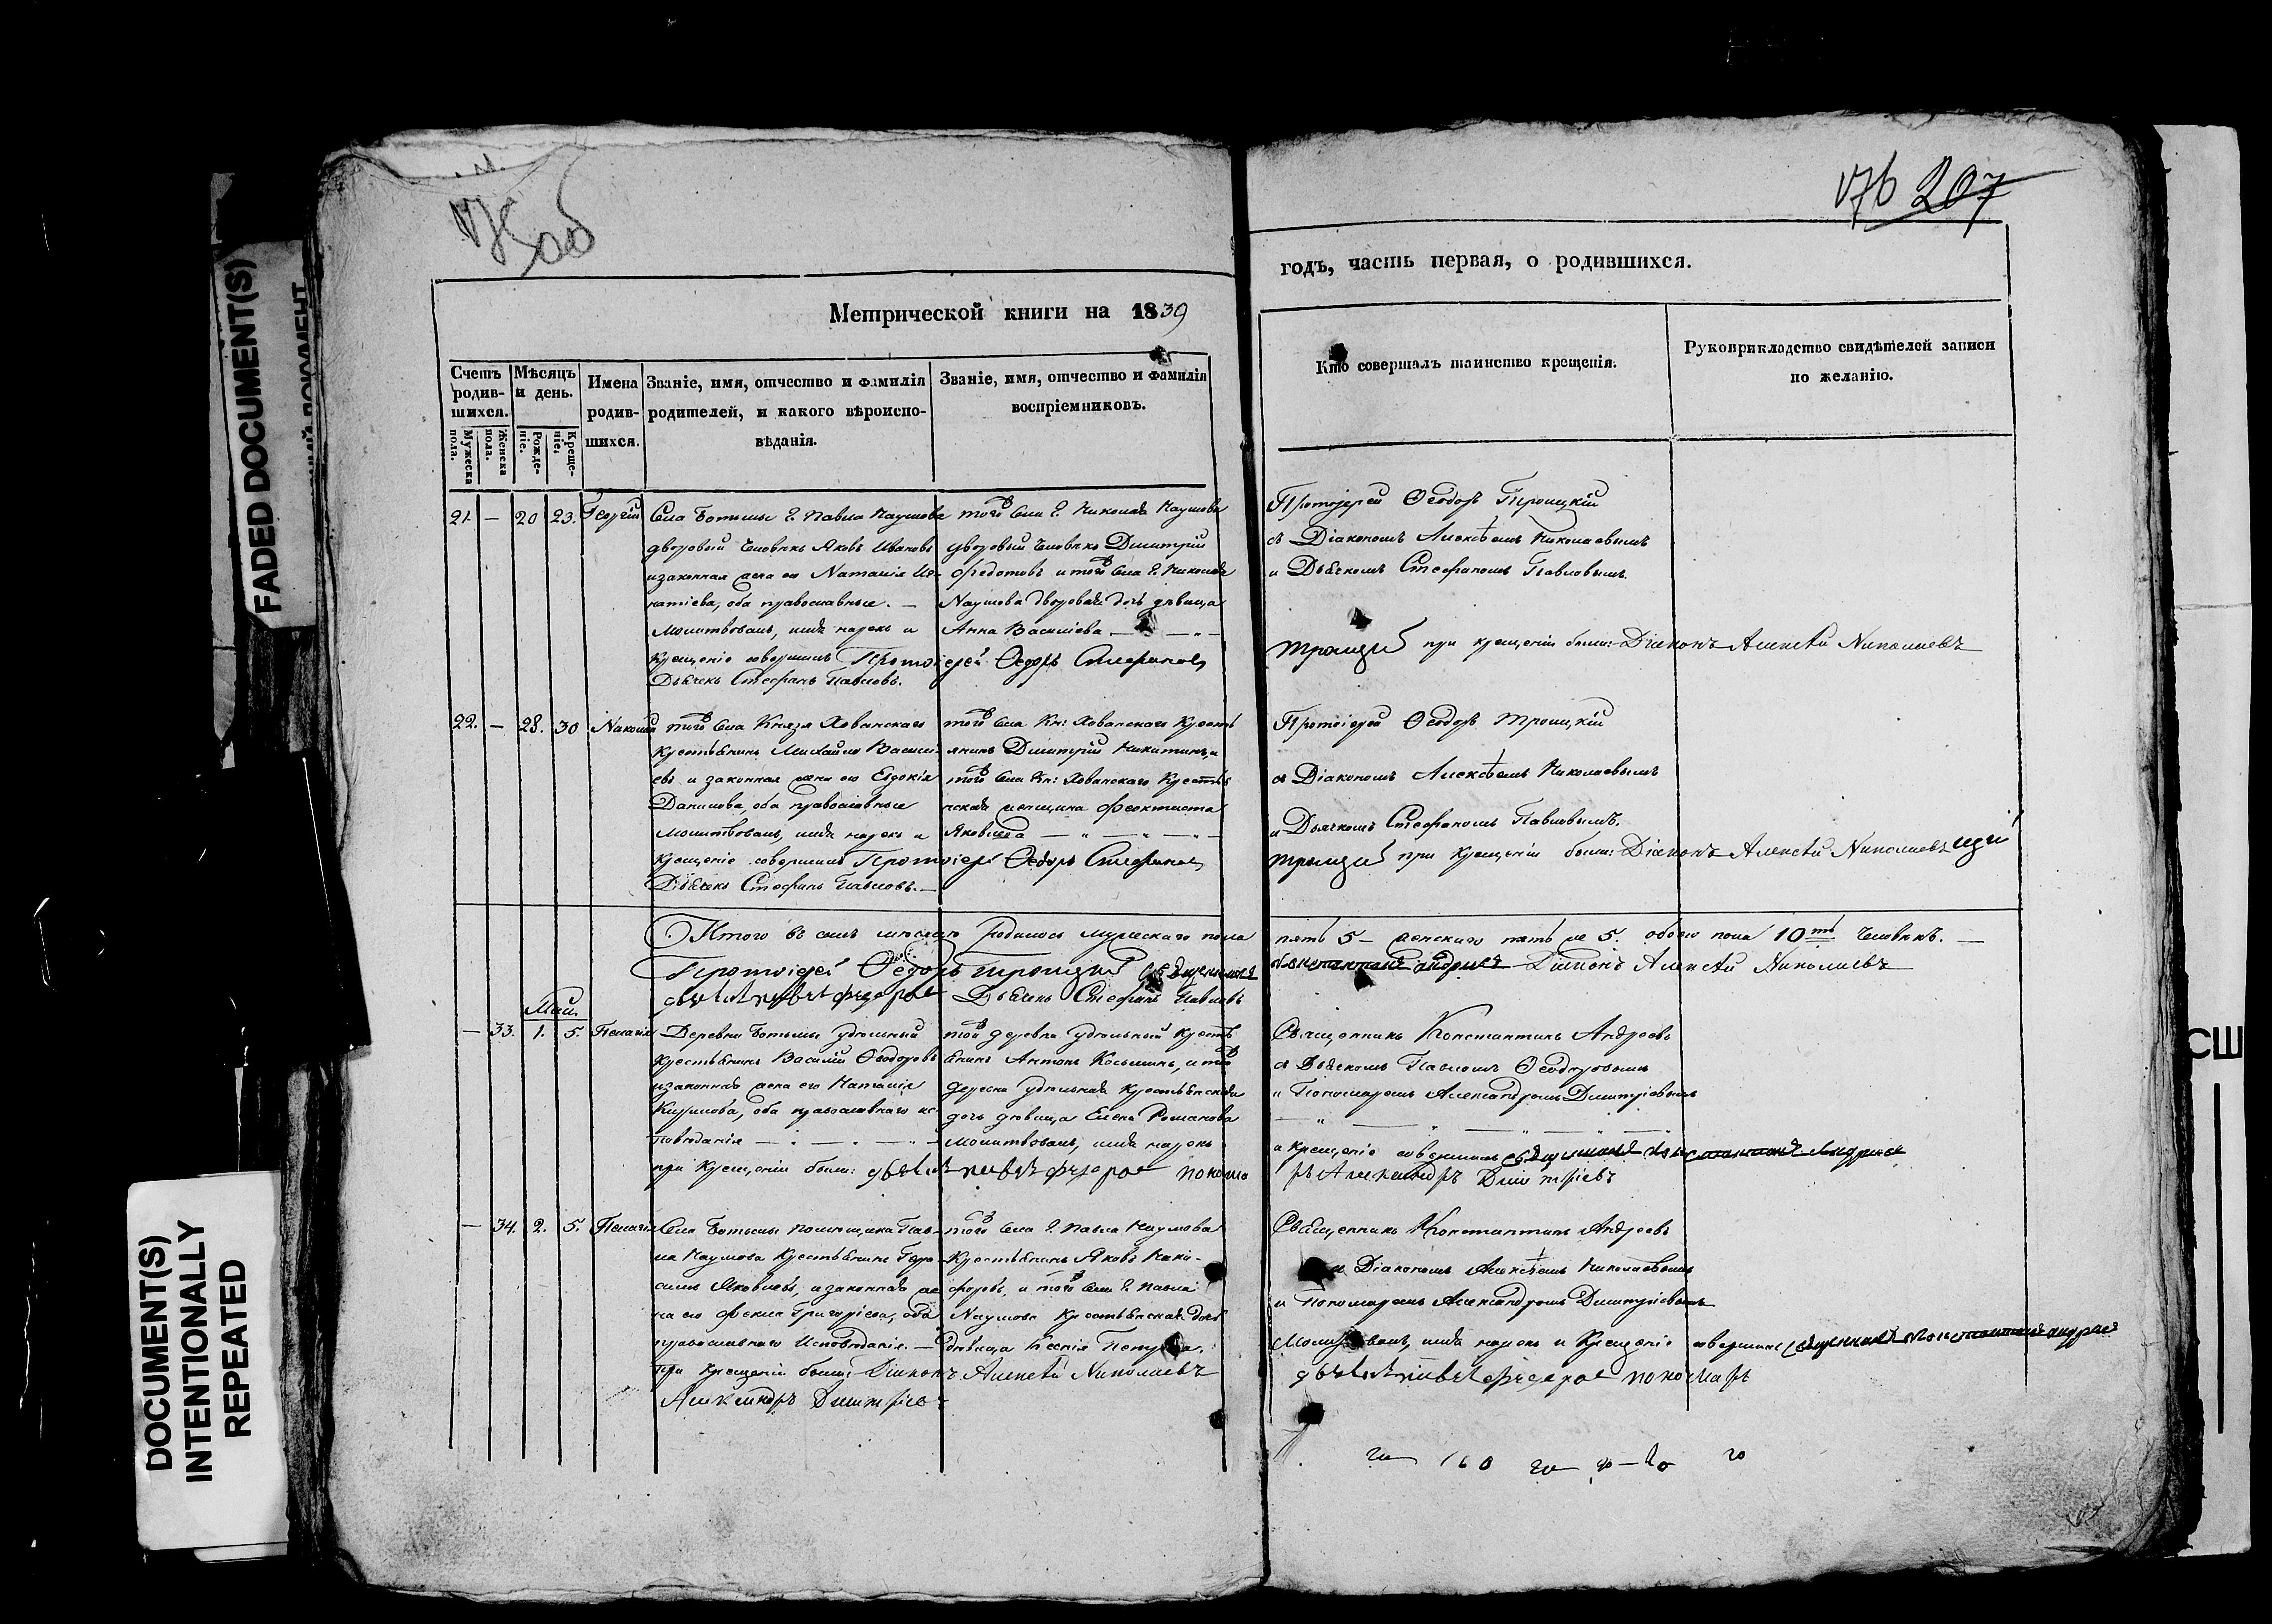 175об
176 207
Метрической книги на 1839
годъ, часть первая, о родившихся.
Счетъ родив-шихся.
Мужеска пола.
Женска пола.
Мѣсяцъ и день.
Рожде-ніе.
Креще-ніе.
Имена родив-шихся.
Званіе, имя, отчество и фамилія
родителей, и какого вѣроиспо-
вѣданія.
Званіе, имя, отчество и фамилія
воспріемниковъ.
Кто совершалъ таинство крещенія.
Рукоприкладство свидѣтелей записи
по желанію.
21. — 20 23. Георгій
Села Ботьмы Г. Павла Наумова
дворовый человѣкъ Яковъ Ивановъ
и законная жена его Наталія Иг-
натіева, оба православные. —
Молитвовалъ, имя нарекъ и
крещеніе совершилъ Протоіерей Ѳедоръ Стефановъ
Дьячекъ Стефанъ Павловъ.
того Села Г. Николая Наумова
дворовый человѣкъ Димитрій
Федотовъ и того Села Г. Николая
Наумова дворовая дочь дѣвица
Анна Васильева
Протоіерей Ѳеодоръ Троицкій
съ Діакономъ Алексѣемъ Николаевымъ
и Дьячкомъ Стефаномъ Павловымъ.
при крещеніи были: Діаконъ Алексѣй Николаевъ
22. — 28. 30 Николай
того Села Князя Хованскаго
крестьянинъ Михайло Василь-
евъ и законная жена его Евдокія
Данилова, оба православные
Молитвовалъ, имя нарекъ и
крещеніе совершилъ Протоіерей Ѳедоръ Стефановъ
Дьячекъ Стефанъ Павловъ. —
того Села Кн: Хованскаго Кресть-
янинъ Димитрій Никитинъ, и
того Села Кн: Хованскаго Кресть-
нская женщина Феоктиста
Яковлева
Протоіерей Ѳеодоръ Троицкій
съ Діакономъ Алексѣемъ Николаевымъ
и Дьячкомъ Стефаномъ Павловымъ.
при крещеніи были: Діаконъ Алексѣй Николаевъ
Итого въ семъ мѣсяцѣ родилось мужескаго пола
пять 5 — женскаго пять же 5. обоего пола 10ть человѣкъ. —
Протоіерей Ѳедоръ Троицкій Священникъ
Константинъ Андреевъ Діаконъ Алексѣй Николаевъ
дьячекъ павелъ федоровъ Дьячекъ Стефанъ Павловъ
Маія
— 33. 1. 5. Пелагія
Деревни Ботьмы удѣльный
крестьянинъ Василій Ѳеодоровъ
и законная жена его Наталія
Кирилова, оба православнаго ис-
повѣданія
при крещеніи были: дьячекъ павелъ федоровъ понома
той деревни удѣльный кресть-
янинъ Антонъ Косьминъ, и той
деревни удѣльная крестьянская
дочь дѣвица Елена Романова
Молитвовалъ, имя нарекъ
Священникъ Константинъ Андреевъ
съ Дьячкомъ Павломъ Ѳеодоровымъ
и Пономаремъ Александромъ Димитріевымъ
и крещеніе совершилъ священникъ Константинъ Андреевъ
ръ Александръ Димитріевъ
— 34. 2. 5. Пелагія
Села Ботьмы помѣщика Пав-
ла Наумова Крестьянинъ Гера-
симъ Яковлевъ, и законная же-
на его Фекла Григорьева, оба
православнаго Исповѣданія. —
при крещеніи были: Діаконъ Алексѣй Николаевъ
Александръ Димитріевъ
того Села Г. Павла Наумова
Крестьянинъ Яковъ Ники-
форовъ, и того Села Г. Павла
Наумова Крестьянская дочь
дѣвица Ксенія Петрова.
Священникъ Константинъ Андреевъ
съ Діакономъ Алексѣемъ Николаевымъ
и Пономаремъ Александромъ Димитріевымъ
Молитвовалъ, имя нарекъ и Крещеніе совершилъ священникъ Константинъ Андреевъ
дьячекъ павелъ федоровъ пономарь
FADED DOCUMENT(S)
DOCUMENT(S)
INTENTIONALLY
REPEATED
СШ